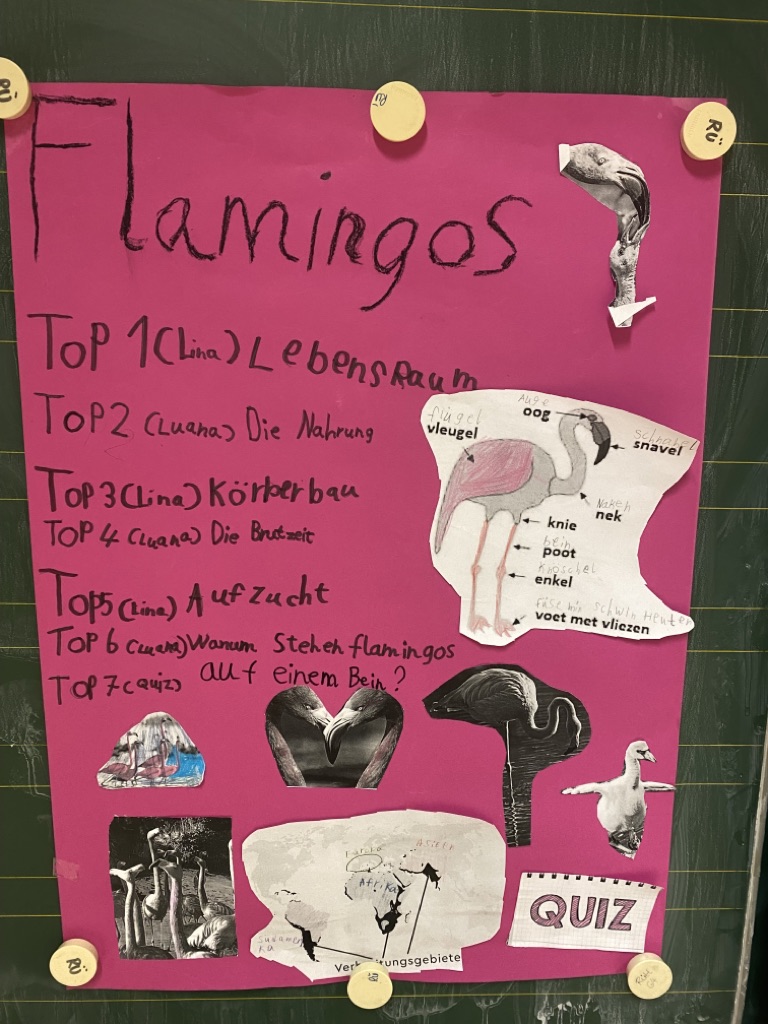 RÜ
RÜ
RÜ
Flamingos
TOP 1 (Lina) LebensRaum
TOP2 (Luana) Die Nahrung
TOP3 (Lina) Körberbau
TOP 4 (Luana) Die Brutzeit
TOP5 (Lina) Aufzucht
TOP 6 (Luana) Warum Stehen flamingos
auf einem Bein?
TOP 7 (Quiz)
Auge
oog
flügel
vleugel
schnabel
snavel
Naken
nek
knie
bein
poot
Knöschel
enkel
füse mit schwim Heuten
voet met vliezen
Asien
Afrika
Verbreitungsgebiete
QUIZ
RÜ
RÜ